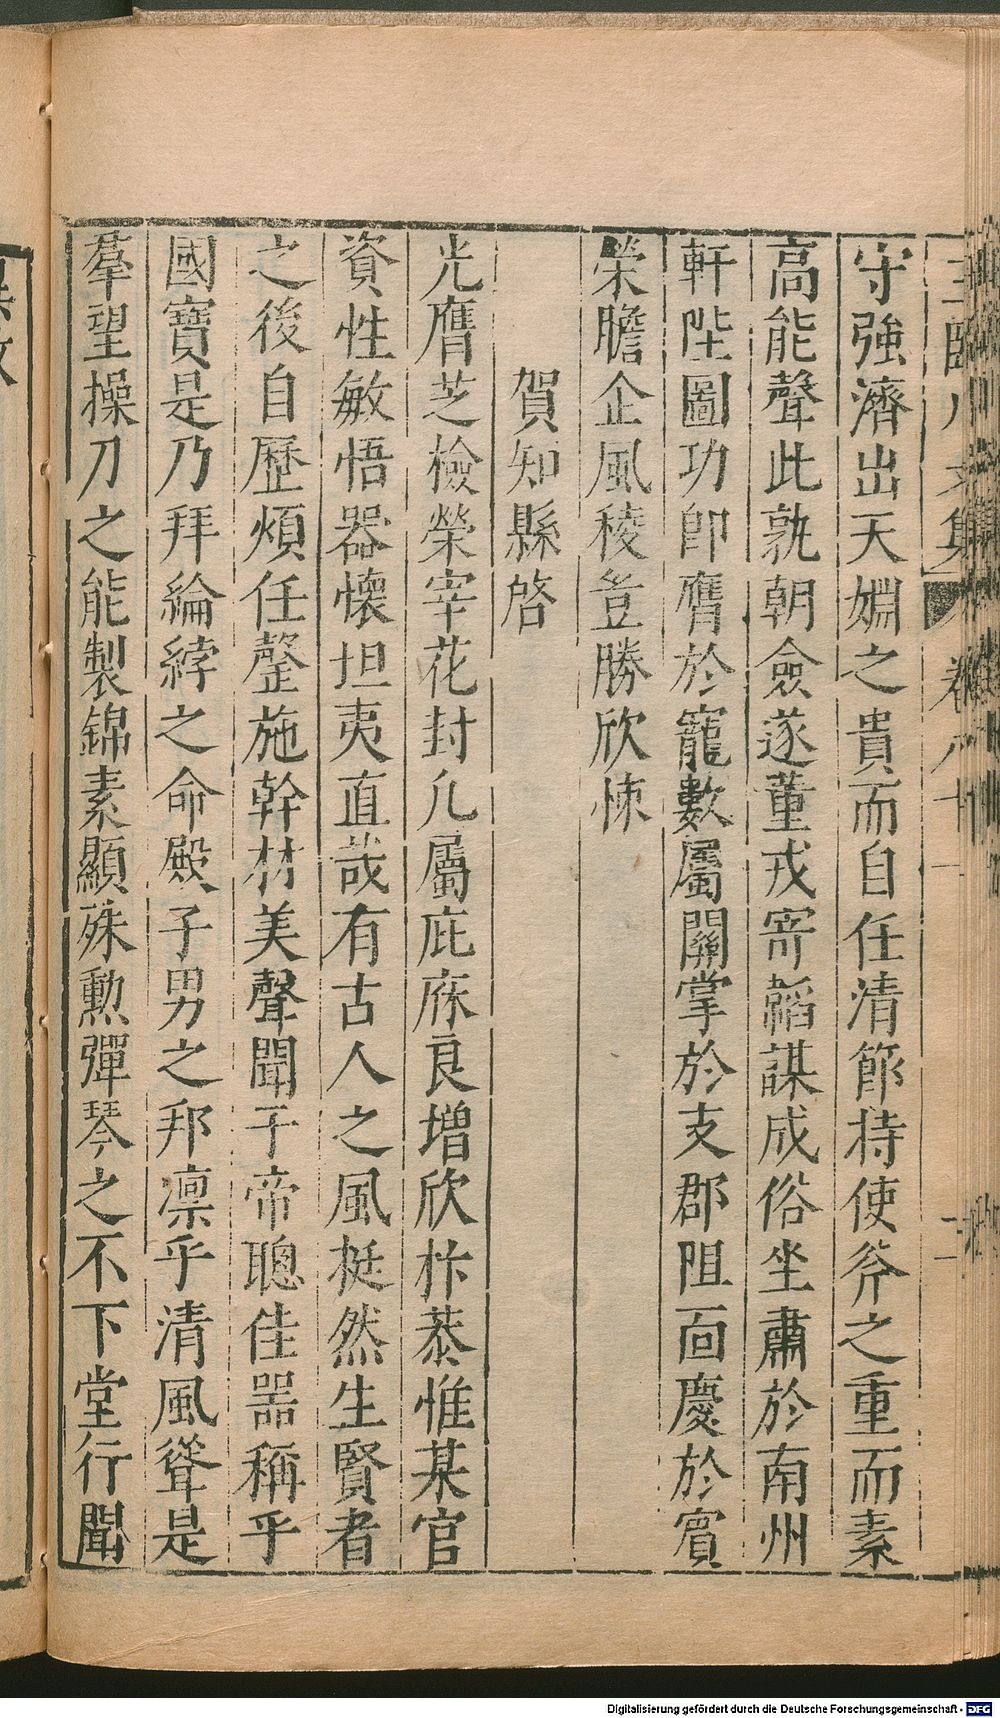 守強濟出天婣之貴而自任清節持使斧之重而素
高能聲此孰朝僉遂董戎寄韜謀成俗坐肅於南州
軒陛圖功即膺於寵數屬關掌於支郡阻面慶於賓
榮瞻企風稜豈勝欣悚
賀知縣啓
光膺芝檢榮宰花封凡屬庇庥良增欣抃恭惟某官
資性敏悟器懷坦夷直哉有古人之風挺然生賢者
之後自歷煩任罄施幹材美聲聞于帝聰佳器稱乎
國寶是乃拜綸綍之命殿子男之邦凛乎清風聳是
羣望操刀之能製錦素顯殊勲彈琴之不下堂行聞
Digitalisierung gefördert durch die Deutsche Forschungsgemeinschaft - DFG